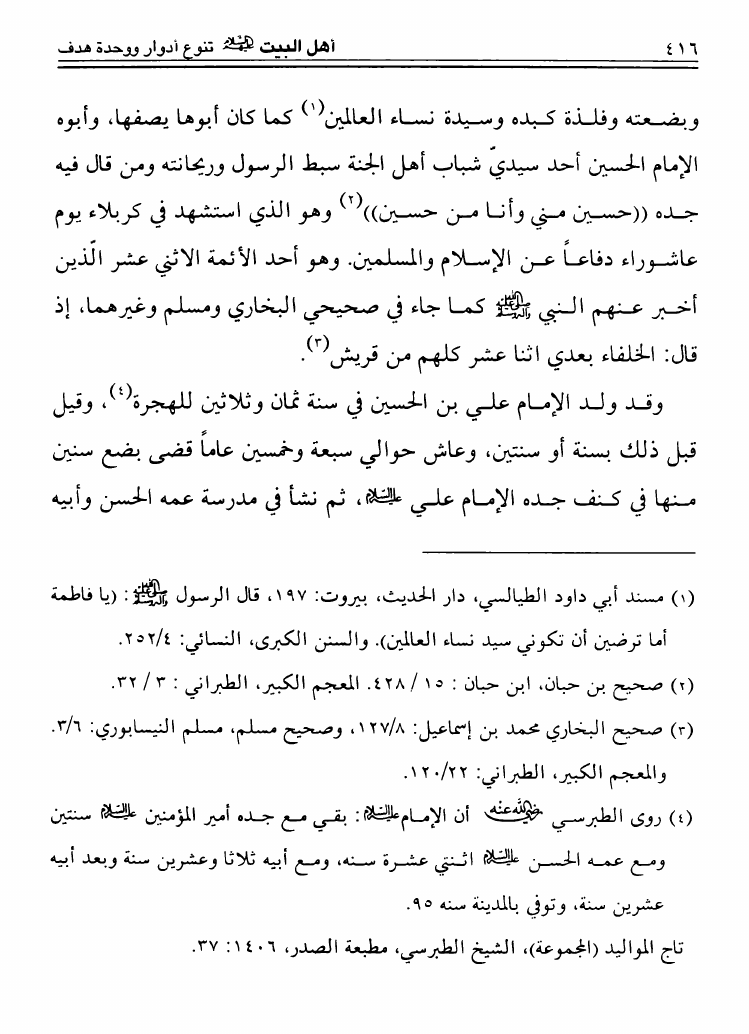 ٤١٦ أهل البيت عليهم السلام تنوع أدوار ووحدة هدف
وبضعته وفلذة كبده وسيدة نساء العالمين(١) كما كان أبوها يصفها، وأبوه
الإمام الحسين أحد سيديّ شباب أهل الجنة سبط الرسول وريحانته ومن قال فيه
جده ((حسين مني وأنا من حسين))(٢) وهو الذي استشهد في كربلاء يوم
عاشوراء دفاعاً عن الإسلام والمسلمين. وهو أحد الأئمة الاثني عشر الّذين
أخبر عنهم النبي صلى الله عليه وآله كما جاء في صحيحي البخاري ومسلم وغيرهما، إذ
قال: الخلفاء بعدي اثنا عشر كلهم من قريش(٣).
وقد ولد الإمام علي بن الحسين في سنة ثمان وثلاثين للهجرة(٤)، وقيل
قبل ذلك بسنة أو سنتين، وعاش حوالي سبعة وخمسين عاماً قضى بضع سنين
منها في كنف جده الإمام علي عليه السلام، ثم نشأ في مدرسة عمه الحسن وأبيه
(١) مسند أبي داود الطيالسي، دار الحديث، بيروت: ١٩٧، قال الرسول صلى الله عليه وآله: (يا فاطمة
أما ترضين أن تكوني سيد نساء العالمين). والسنن الكبرى، النسائي: ٢٥٢/٤.
(٢) صحيح بن حبان، ابن حبان : ١٥ / ٤٢٨. المعجم الكبير، الطبراني : ٣ / ٣٢.
(٣) صحيح البخاري محمد بن إسماعيل: ١٢٧/٨، وصحيح مسلم، مسلم النيسابوري: ٣/٦.
والمعجم الكبير، الطبراني: ١٢٠/٢٢.
(٤) روى الطبرسي رضي الله عنه أن الإمام عليه السلام: بقي مع جده أمير المؤمنين عليه السلام سنتين
ومع عمه الحسن عليه السلام اثنتي عشرة سنه، ومع أبيه ثلاثا وعشرين سنة وبعد أبيه
عشرين سنة، وتوفي بالمدينة سنه ٩٥.
تاج المواليد (المجموعة)، الشيخ الطبرسي، مطبعة الصدر، ١٤٠٦: ٣٧.